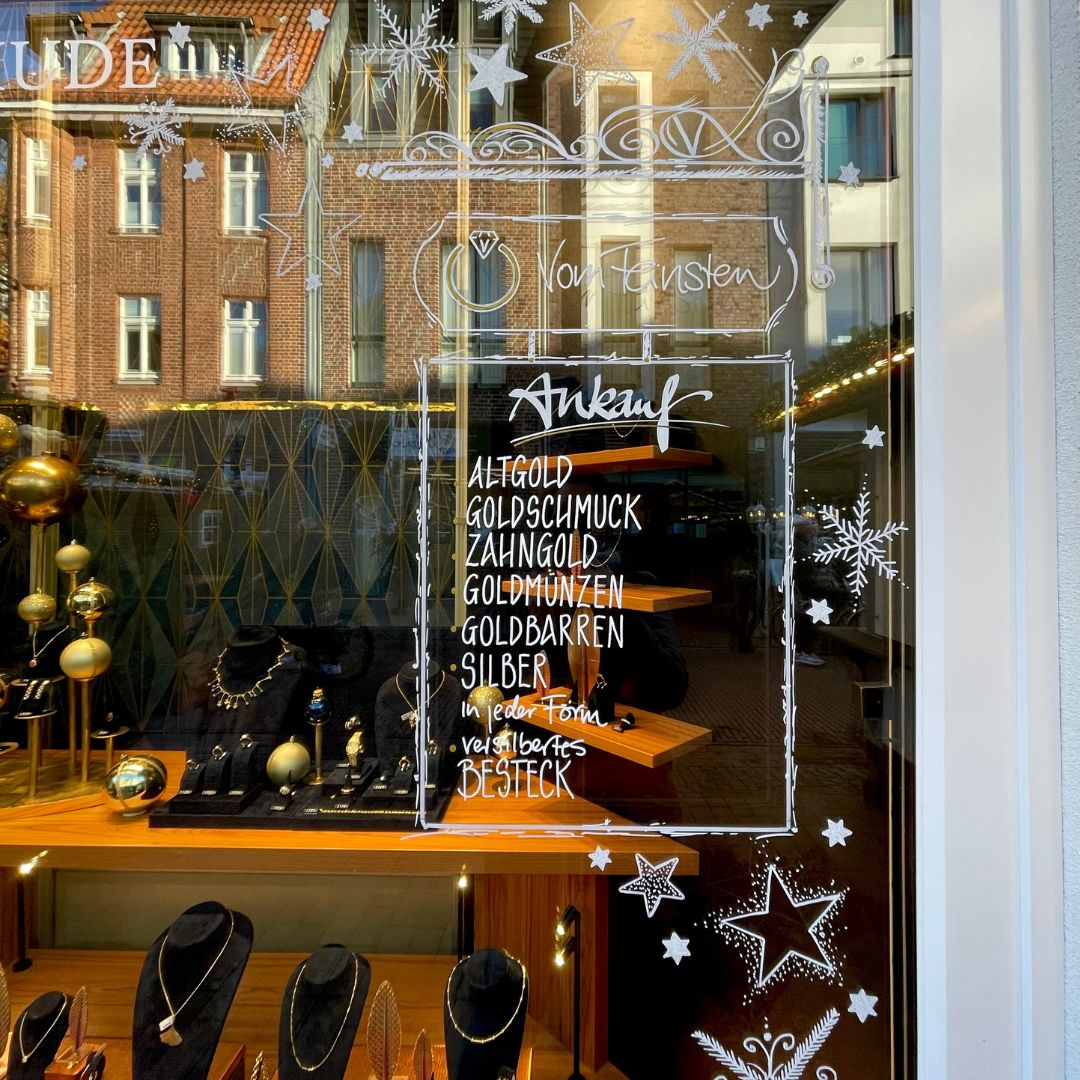 UDE
Vom Feinsten
Ankauf
ALTGOLD
GOLDSCHMUCK
ZAHNGOLD
GOLDMÜNZEN
GOLDBARREN
SILBER
in jeder Form
versilbertes
BESTECK